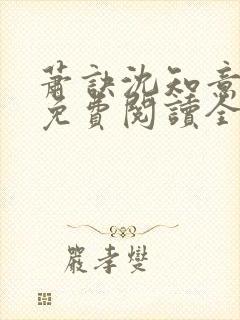 萧訣沈知意
免費閱讀全
嚴孝燮